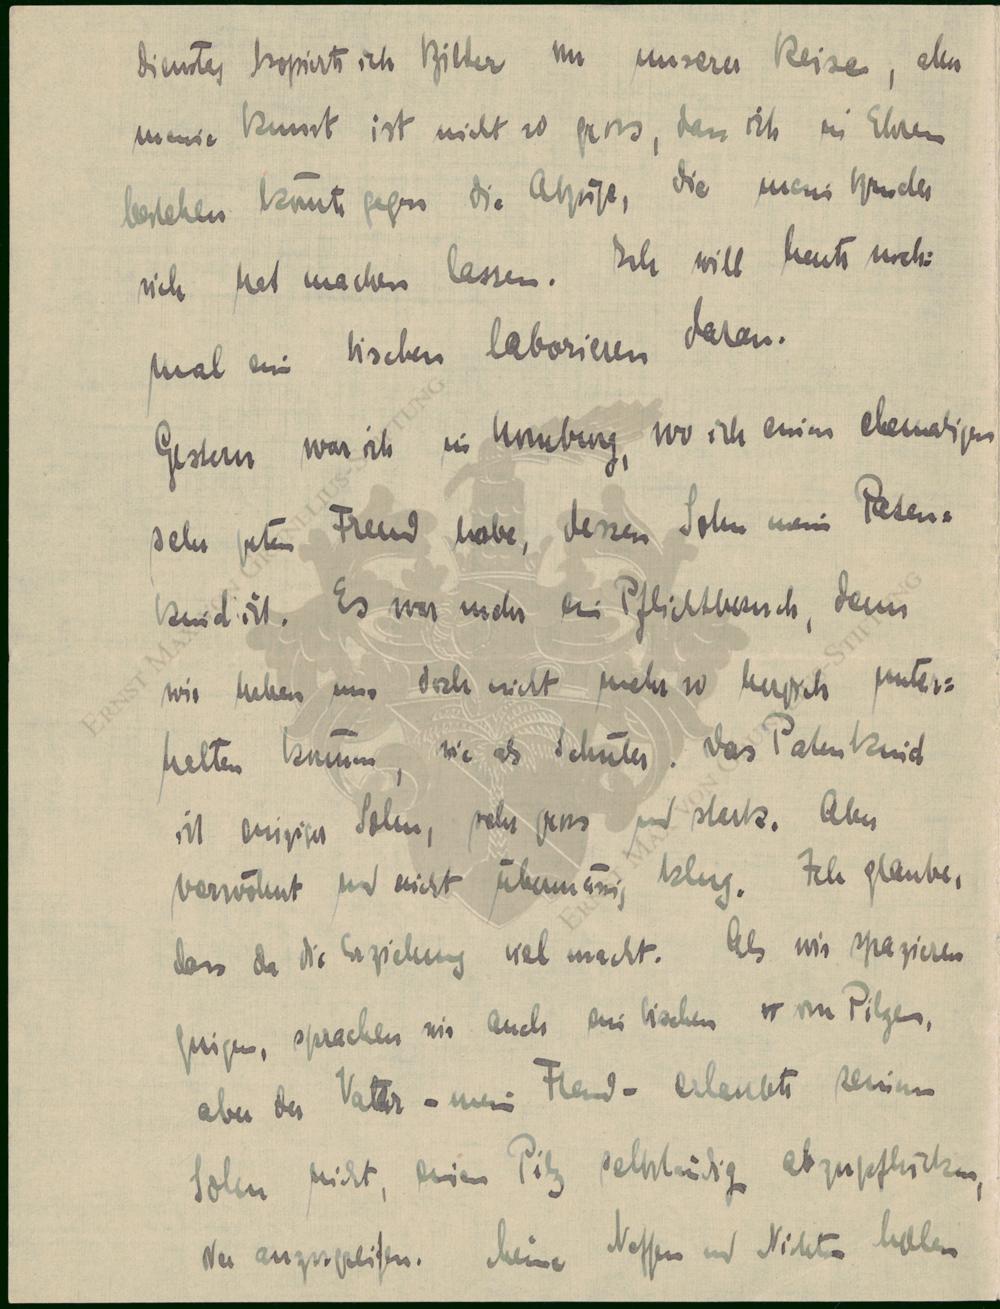 Dienstag kopierte ich Bilder von unserer Reise, aber
meine Kunst ist nicht so gross, dass ich in Ehren
bestehen könnte gegen die Abzüge, die mein Bruder
sich hat machen lassen. Ich will heute noch-
mal ein bischen laborieren daran.
Gestern war ich in Homburg, wo ich einen ehemaligen
sehr guten Freund habe, dessen Sohn mein Paten-
kind ist. Es war mehr ein Pflichtbesuch, denn
wir haben uns doch nicht mehr so herzlich unter-
halten können, wie als Schüler. Das Patenkind
ist einziger Sohn, sehr gross und stark. Aber
verwöhnt und nicht übermässig klug. Ich glaube,
dass da die Erziehung viel macht. Als wir spazieren
gingen, sprachen wir auch ein bischen von Pilzen,
aber der Vater - mein Freund - erlaubte seinem
Sohn nicht, einen Pilz selbständig abzupflücken,
oder anzugreifen. Meine Neffen und Nichten haben
ERNST MAX VON GRUNELIUS-STIFTUNG
ERNST MAX VON GRUNELIUS-STIFTUNG